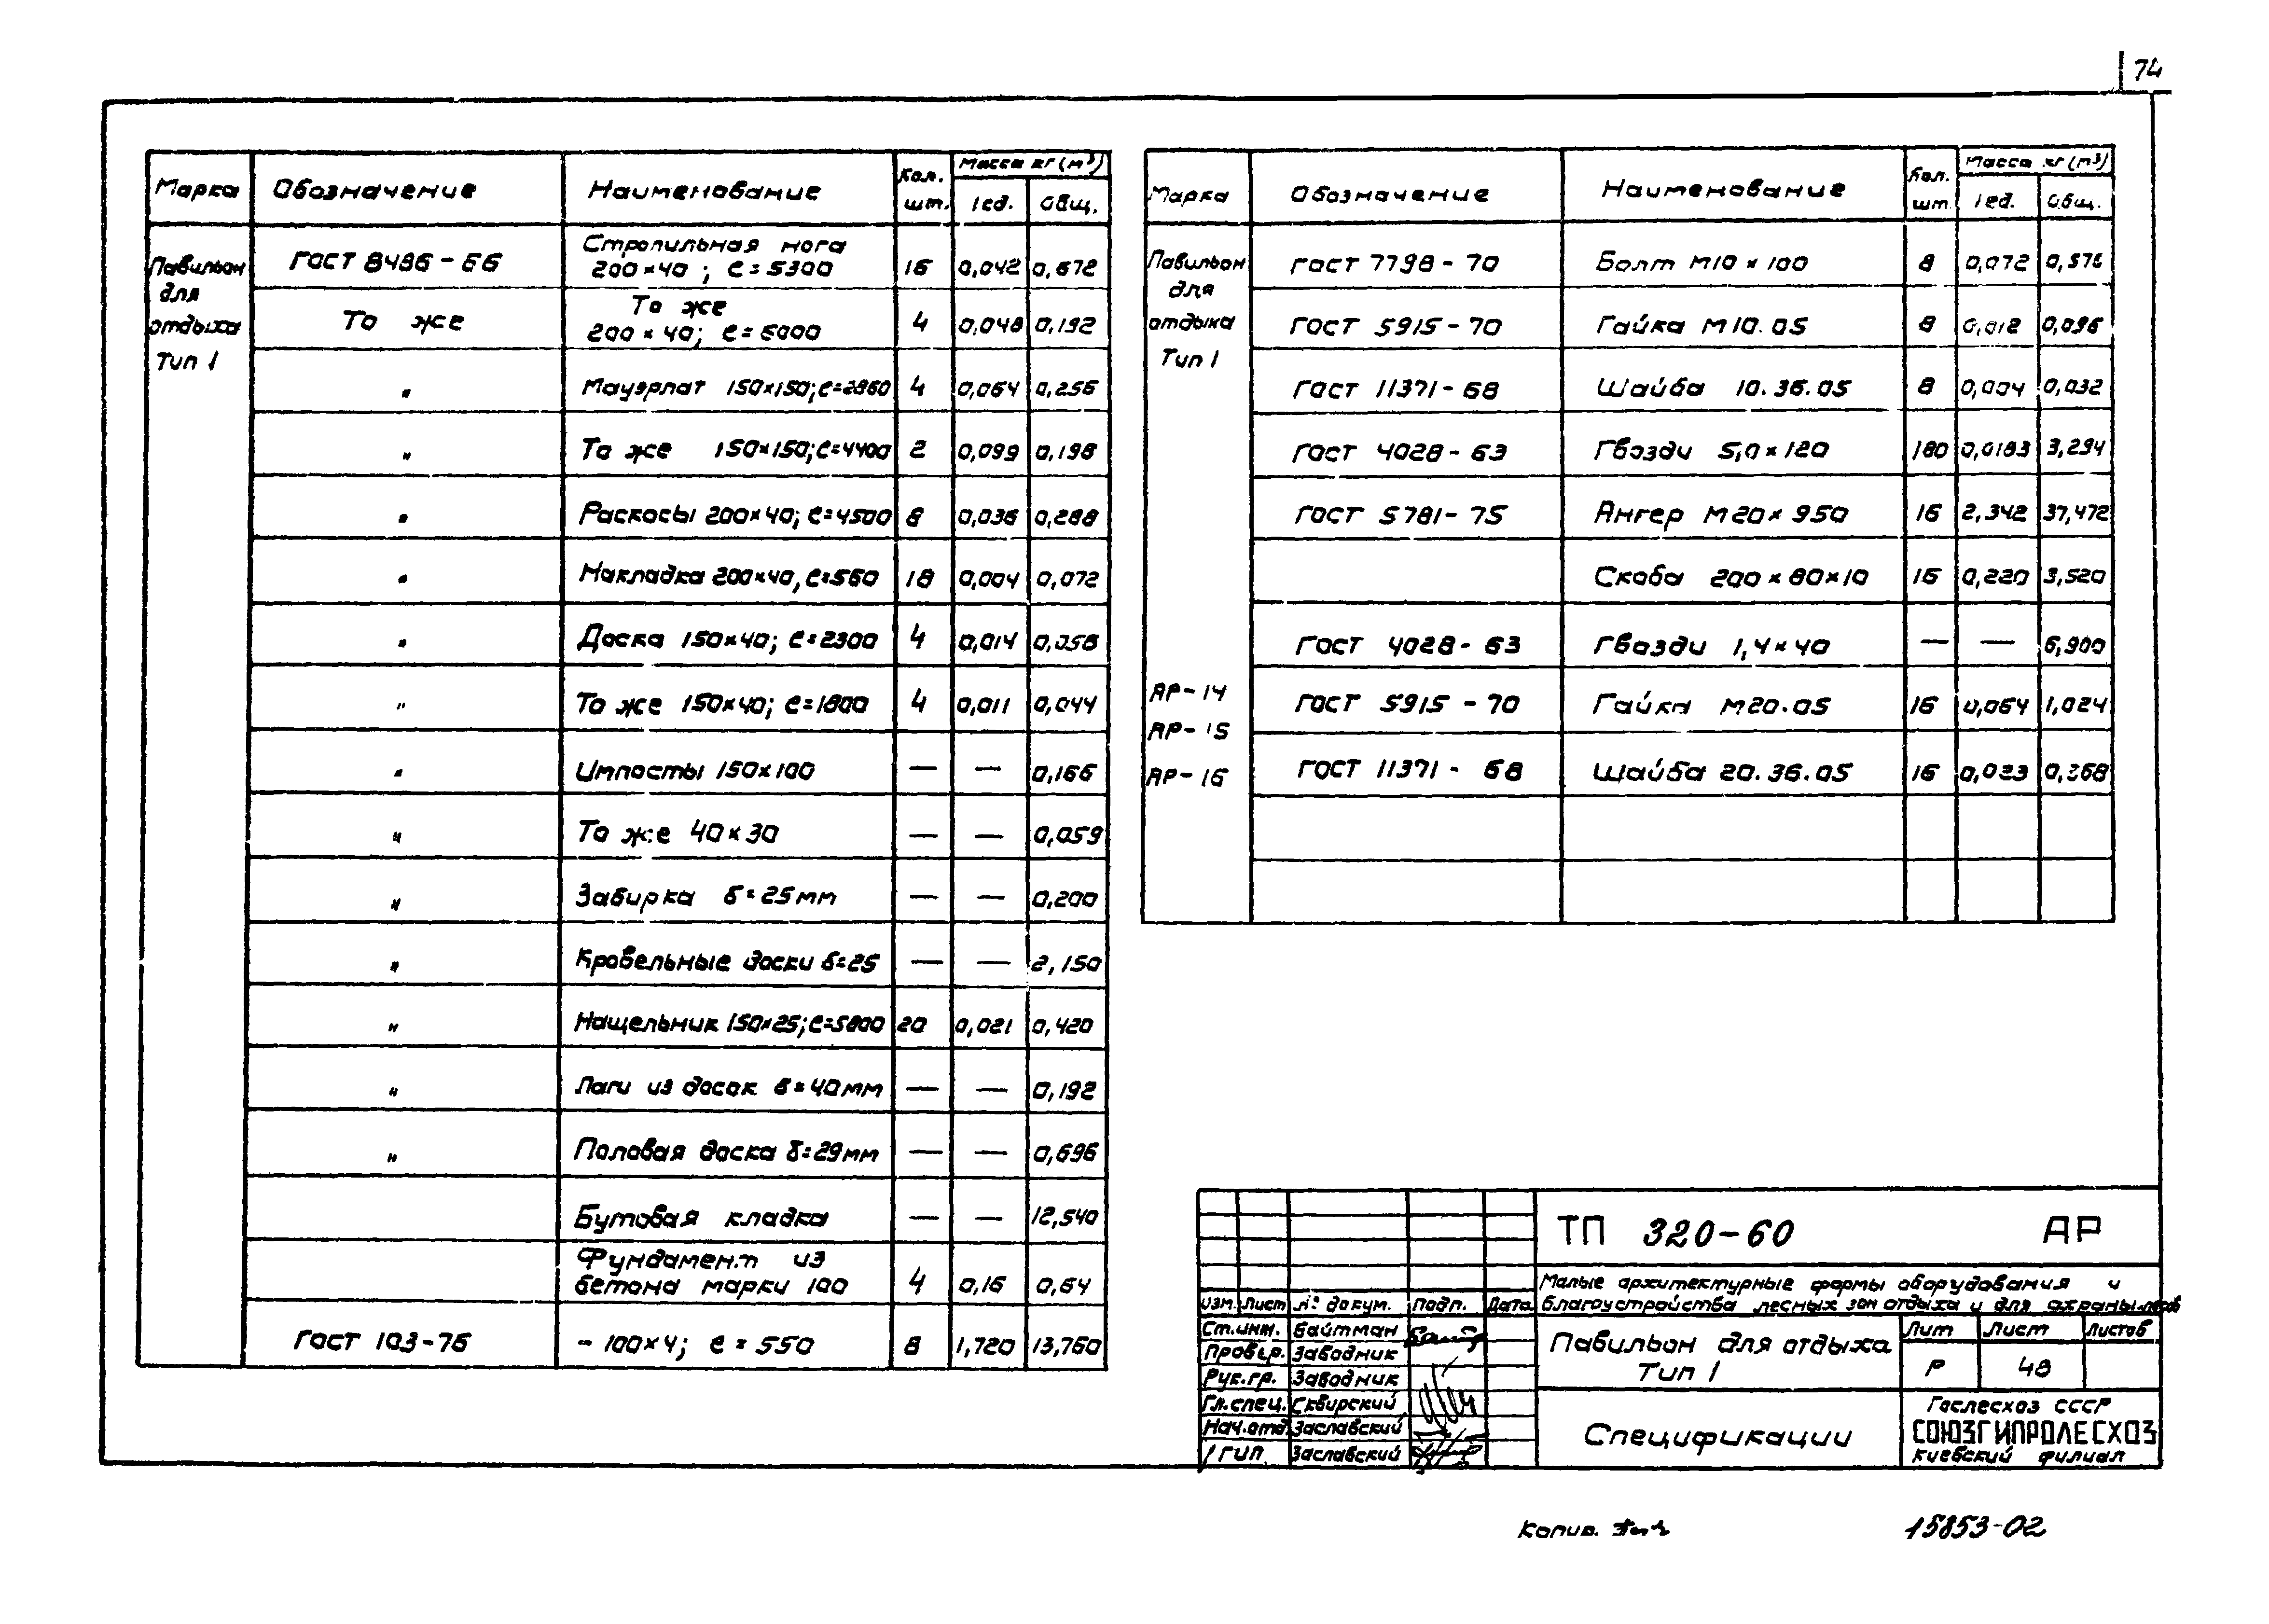 74
Марка Обозначение Наименование Кол. шт. Масса кг (м³) 1ед. Общ.
Павильон для отдыха Тип 1
ГОСТ 8486-66 Стропильная нога 200×40; е=5300 16 0,042 0,672
То же То же 200×40; е=6000 4 0,048 0,192
" Мауэрлат 150×150; е=2860 4 0,064 0,256
" То же 150×150; е=4400 2 0,099 0,198
" Раскосы 200×40; е=4500 8 0,036 0,288
" Накладка 200×40, е=560 18 0,004 0,072
" Доска 150×40; е=2300 4 0,014 0,056
" То же 150×40; е=1800 4 0,011 0,044
" Импосты 150×100 — — 0,166
" То же 40×30 — — 0,059
" Забирка δ=25мм — — 0,200
" Кровельные доски δ=25 — — 2,150
" Нащельник 150×25; е=5800 20 0,021 0,420
" Лаги из досок δ=40мм — — 0,192
" Половая доска δ=29мм — — 0,696
Бутовая кладка — — 12,540
Фундамент из бетона марки 100 4 0,16 0,64
ГОСТ 103-76 - 100×4; е=550 8 1,720 13,760
Марка Обозначение Наименование Кол. шт. Масса кг (м³) 1ед. Общ.
Павильон для отдыха Тип 1
ГОСТ 7798-70 Болт М10×100 8 0,072 0,576
ГОСТ 5915-70 Гайка М10.05 8 0,012 0,096
ГОСТ 11371-68 Шайба 10.36.05 8 0,004 0,032
ГОСТ 4028-63 Гвозди 5,0×120 180 0,0183 3,294
ГОСТ 5781-75 Ангер М20×950 16 2,342 37,472
Скоба 200×80×10 16 0,220 3,520
ГОСТ 4028-63 Гвозди 1,4×40 — — 6,900
АР-14 ГОСТ 5915-70 Гайка М20.05 16 0,064 1,024
АР-15
АР-16 ГОСТ 11371-68 Шайба 20.36.05 16 0,023 0,368
ТП 320-60 АР
Малые архитектурные формы оборудования и
благоустройства лесных зон отдыха и для охраны лесов
Изм. Лист № докум. Подп. Дата
Ст.инж. Байтман
Провер. Заводник
Рук.гр. Заводник
Гл.спец. Сквирский
Нач.отд. Заславский
ГИП Заславский
Павильон для отдыха
Тип 1
Лит Лист Листов
Р 48
Спецификации
Гослесхоз СССР
СОЮЗГИПРОЛЕСХОЗ
Киевский филиал
Копир.
15853-02